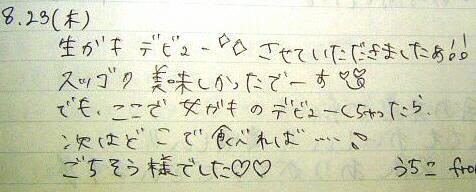 8.23(木)
生ガキデビュー◇◇させていただきましたぁ!!
スッゴク美味しかったでーす♡♡
でも、ここで生ガキのデビューしちゃったら、
次はどこで食べれば……♪
ごちそう様でした♡♡ うちこ from